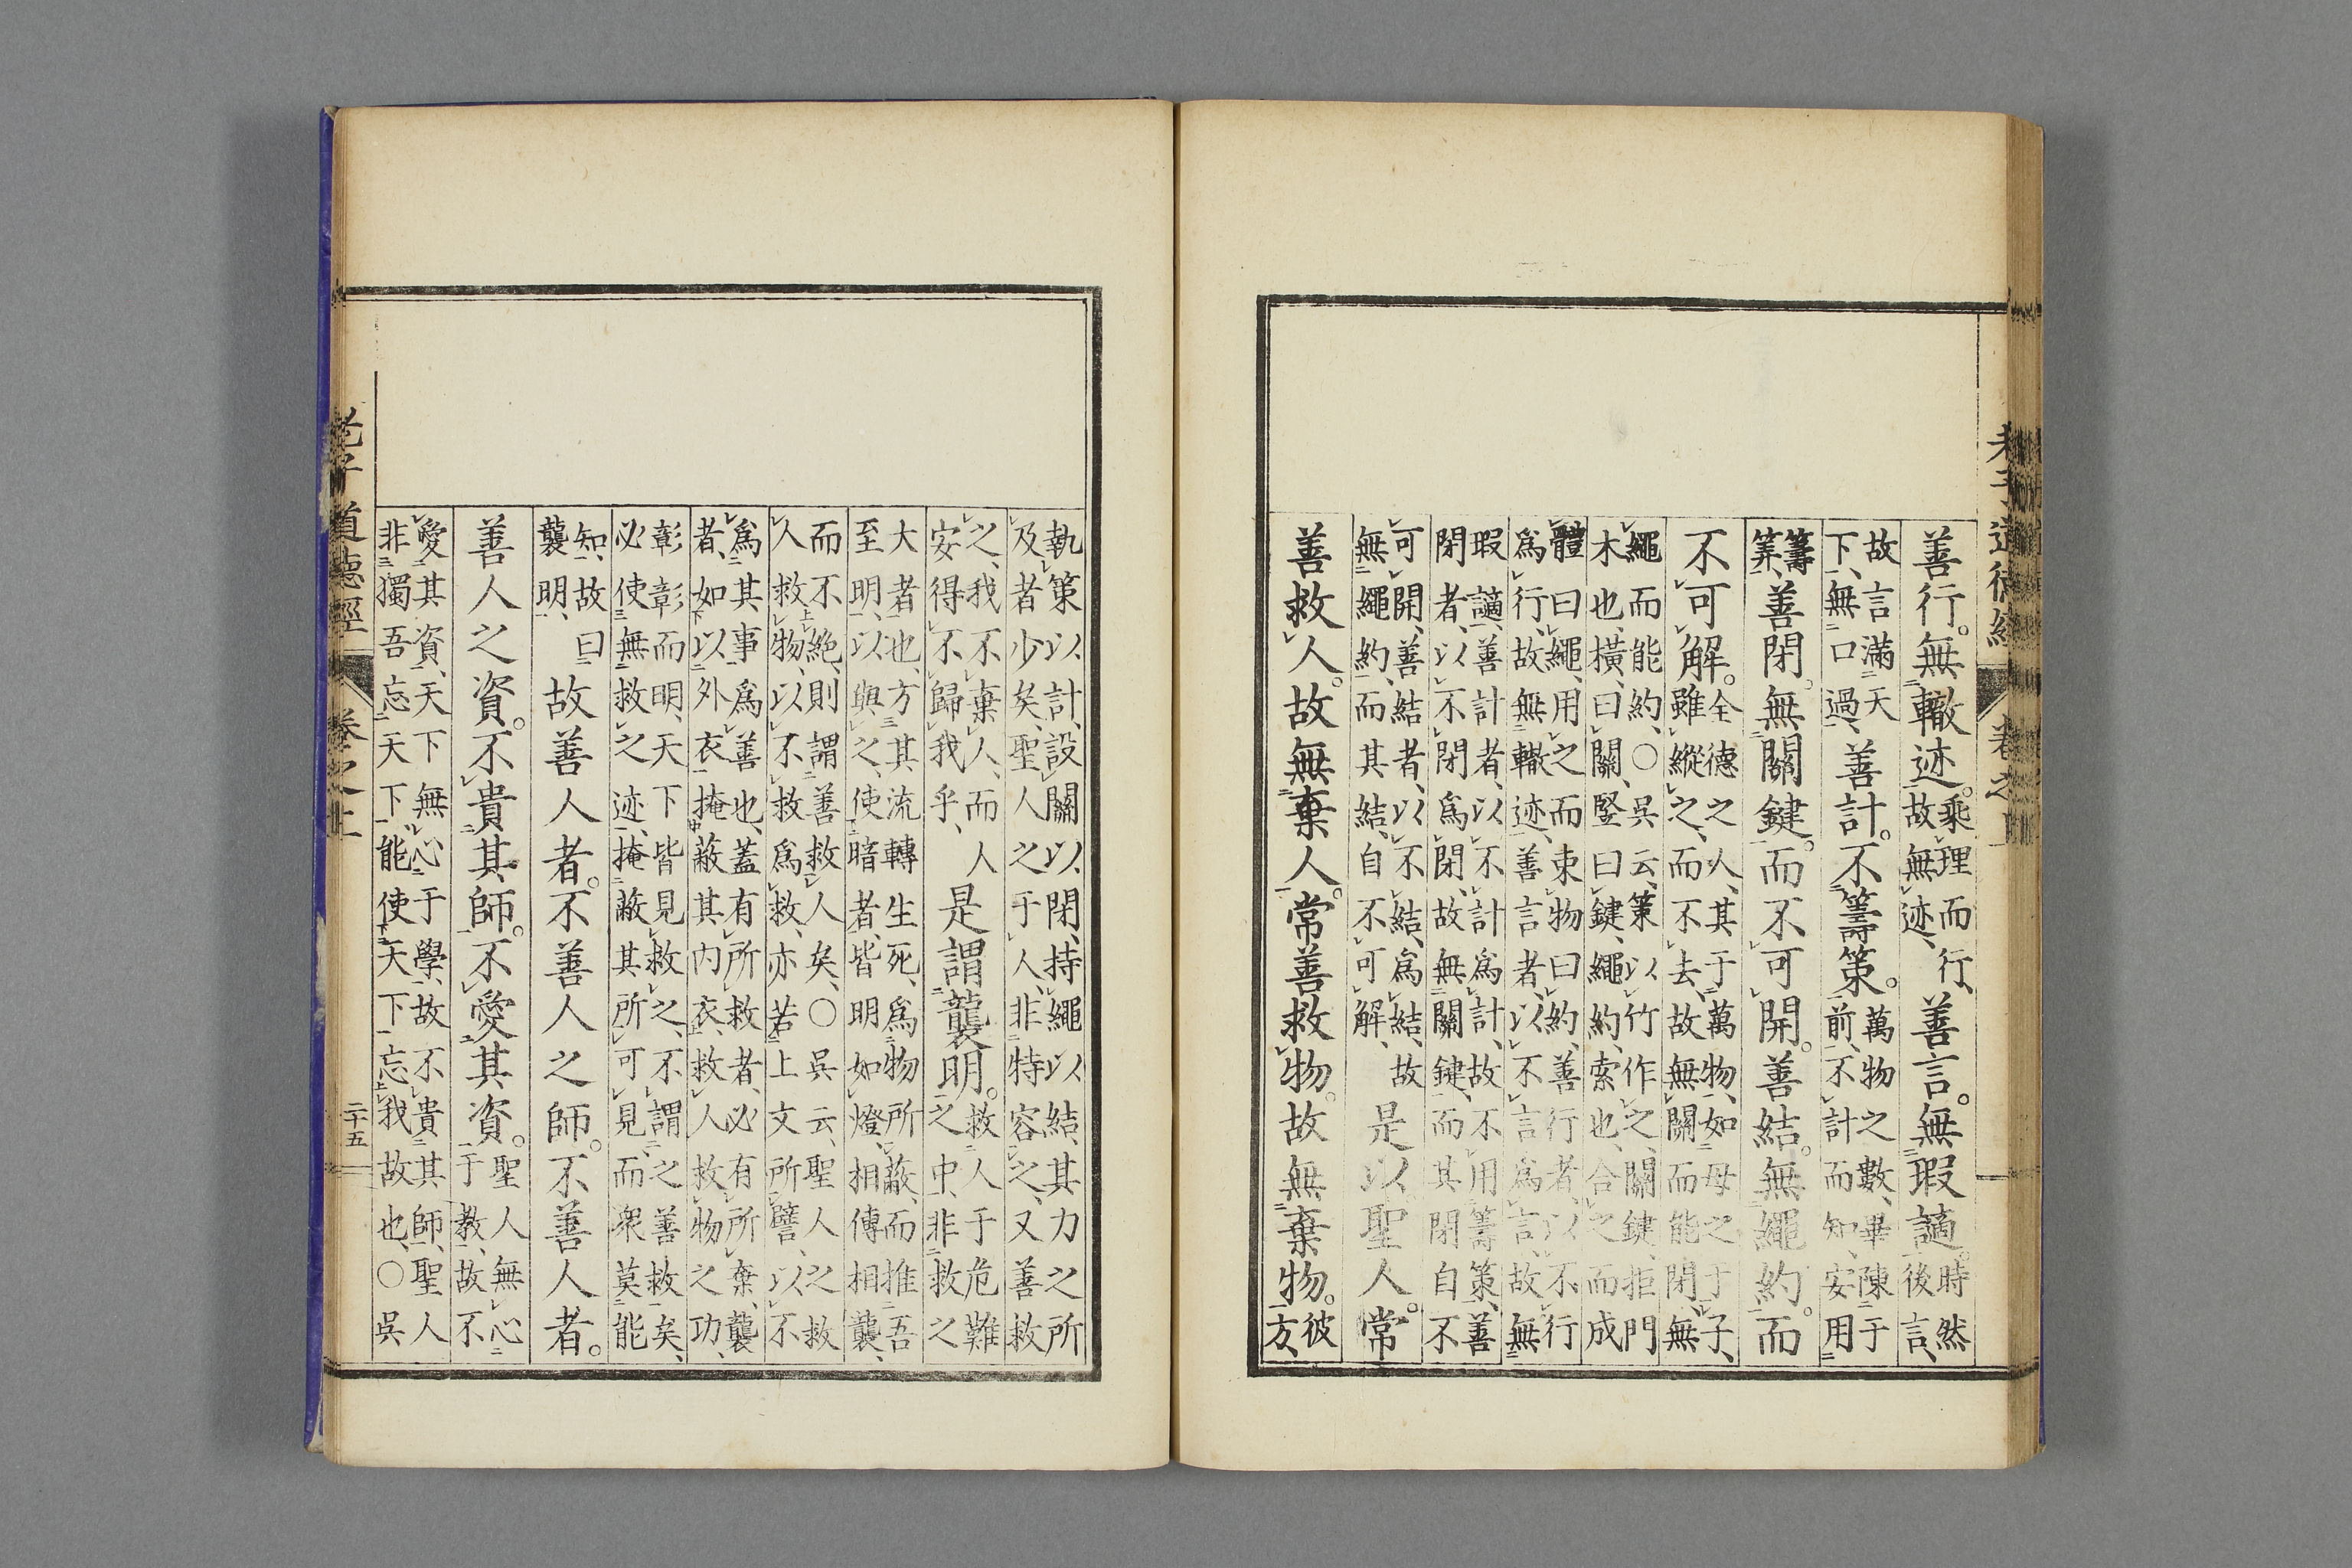 老子道德經 卷之上
善行。無轍迹。乘理而行、故無迹、善言。無瑕讁。時然後言、
故言滿天下、無口過、善計。不籌策。萬物之數、畢陳于前、不計而知、安用
籌筭、善閉。無關鍵。而不可開。善結。無繩約。而
不可解。全德之人、其于萬物、如母之于子、雖縱之、而不去、故無關而能閉、無
繩而能約、〇吳云、策以竹作之、關鍵、拒門木也、橫曰關、竪曰鍵、繩約、索也、合之而成
體曰繩、用之而束物曰約、善行者、以不行爲行、故無轍迹、善言者、以不言爲言、故無
瑕讁、善計者、以不計爲計、故不用籌策、善閉者、以不閉爲閉、故無關鍵、而其閉自不
可開、善結者、以不結爲結、故無繩約、而其結、自不可解、是以聖人。常
善救人。故無棄人。常善救物。故無棄物。彼方、
執策以計、設關以閉、持繩以結、其力之所及者少矣、聖人之于人、非特容之、又善救
之、我不棄人、而人安得不歸我乎、是謂襲明。救人于危難之中、非救之
大者也、方其流轉生死、爲物所蔽、而推吾至明、以與之、使暗者、皆明如燈、相傳相襲、
而不絕、則謂善救人矣、〇吳云、聖人之救人救物、以不救爲救、亦若上文所譬、以不
爲其事爲善也、蓋有所救者、必有所棄、襲者、如以外衣掩蔽其內衣、救人救物之功、
彰彰而明、天下皆見救之、不謂之善救矣、必使無救之迹、掩蔽其所可見、而衆莫能
知、故曰襲明、故善人者。不善人之師。不善人者。
善人之資。不貴其師。不愛其資。聖人無心于教、故不
愛其資、天下無心于學、故不貴其師、聖人非獨吾忘天下、能使天下忘我故也、〇吳
老子道德經 卷之上 二十五